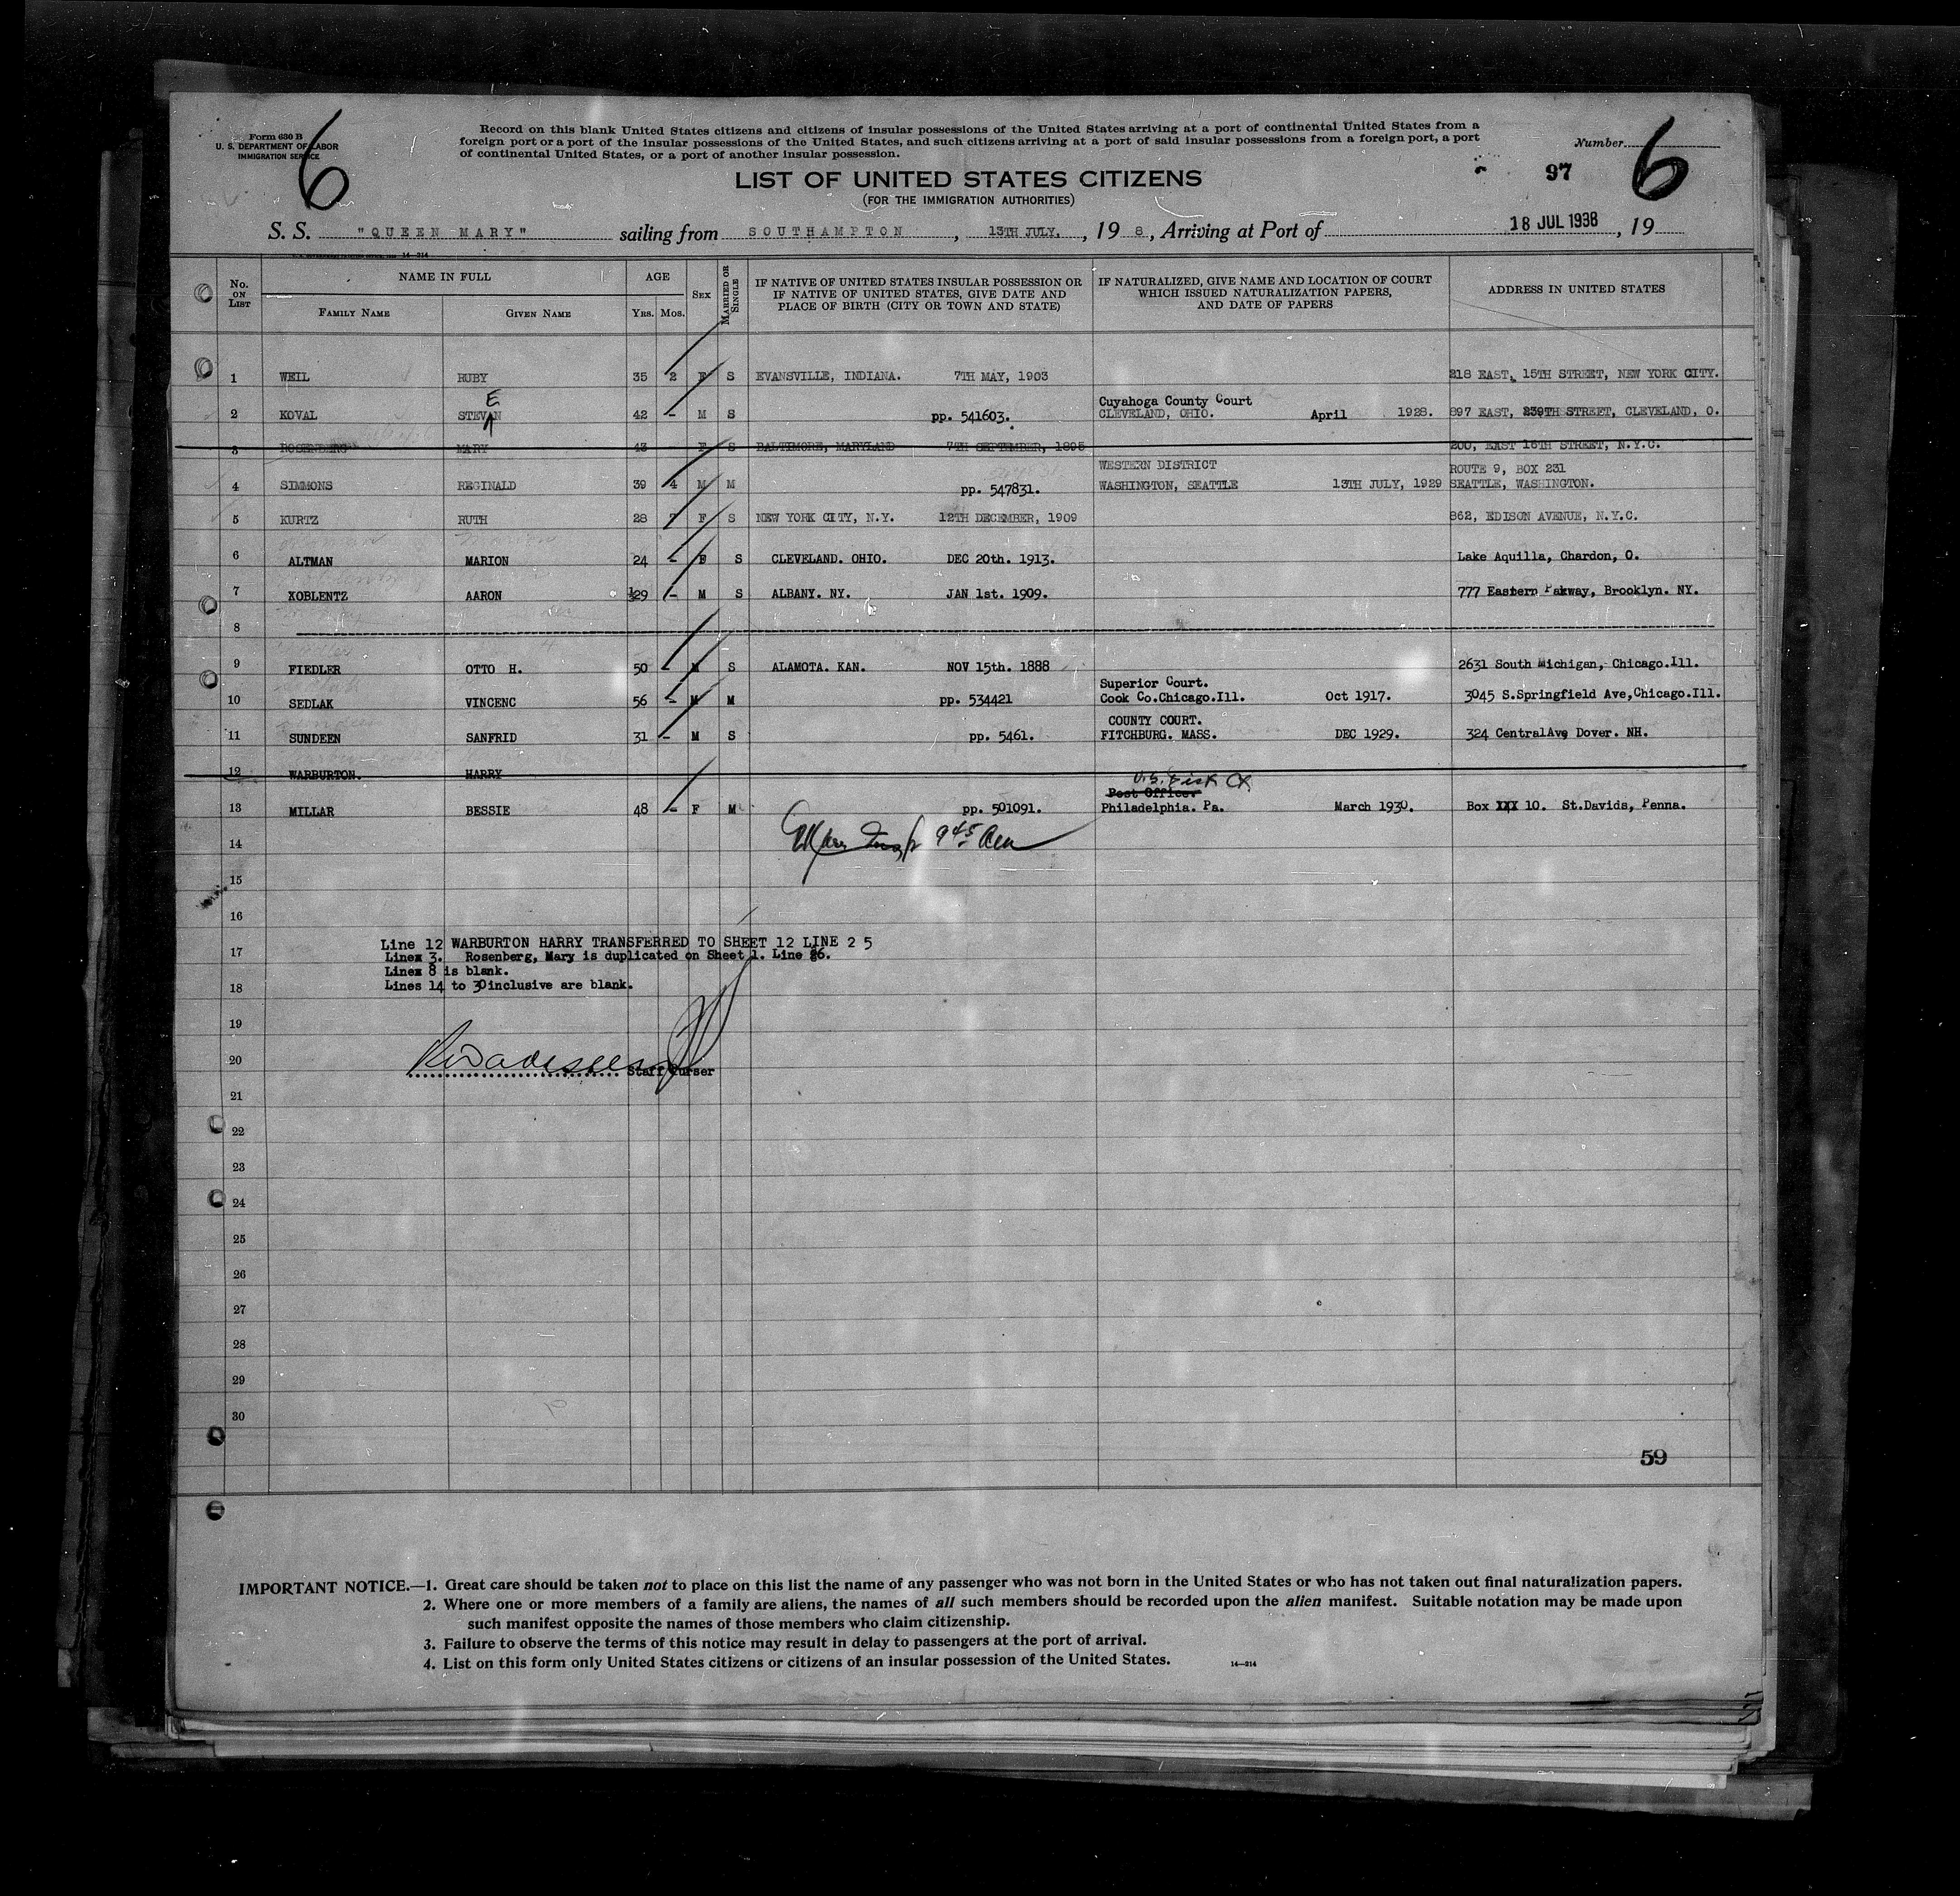 Form 630 B
U. S. DEPARTMENT OF LABOR
IMMIGRATION SERVICE
6
Record on this blank United States citizens and citizens of insular possessions of the United States arriving at a port of continental United States from a
foreign port or a port of the insular possessions of the United States, and such citizens arriving at a port of said insular possessions from a foreign port, a port
of continental United States, or a port of another insular possession.
Number
97 6
LIST OF UNITED STATES CITIZENS
(FOR THE IMMIGRATION AUTHORITIES)
S. S. "QUEEN MARY" sailing from SOUTHAMPTON, 13TH JULY., 19 8, Arriving at Port of 18 JUL 1938, 19
14-214
No. ON LIST NAME IN FULL AGE SEX MARRIED OR SINGLE IF NATIVE OF UNITED STATES INSULAR POSSESSION OR IF NATIVE OF UNITED STATES, GIVE DATE AND PLACE OF BIRTH (CITY OR TOWN AND STATE) IF NATURALIZED, GIVE NAME AND LOCATION OF COURT WHICH ISSUED NATURALIZATION PAPERS, AND DATE OF PAPERS ADDRESS IN UNITED STATES
FAMILY NAME GIVEN NAME YRS. MOS.
1 WEIL RUBY 35 2 F S EVANSVILLE, INDIANA. 7TH MAY, 1903 218 EAST, 15TH STREET, NEW YORK CITY.
E
Cuyahoga County Court
2 KOVAL STEVAN 42 - M S pp. 541603. CLEVELAND, OHIO. April 1928. 897 EAST, 239TH STREET, CLEVELAND, O.
3 ROSENBERG MARY 43 F S BALTIMORE, MARYLAND 7TH SEPTEMBER, 1895 200, EAST 16TH STREET, N.Y.C.
WESTERN DISTRICT ROUTE 9, BOX 231
4 SIMMONS REGINALD 39 4 M M pp. 547831. WASHINGTON, SEATTLE 13TH JULY, 1929 SEATTLE, WASHINGTON.
5 KURTZ RUTH 28 7 F S NEW YORK CITY, N.Y. 12TH DECEMBER, 1909 862, EDISON AVENUE, N.Y.C.
6 ALTMAN MARION 24 - F S CLEVELAND. OHIO. DEC 20th. 1913. Lake Aquilla, Chardon, O.
7 KOBLENTZ AARON 29 - M S ALBANY. NY. JAN 1st. 1909. 777 Eastern Pakway, Brooklyn. NY.
8
9 FIEDLER OTTO H. 50 - M S ALAMOTA. KAN. NOV 15th. 1888 2631 South Michigan, Chicago.Ill.
Superior Court.
10 SEDLAK VINCENC 56 - M M pp. 534421 Cook Co.Chicago.Ill. Oct 1917. 3045 S.Springfield Ave,Chicago.Ill.
COUNTY COURT.
11 SUNDEEN SANFRID 31 - M S pp. 5461. FITCHBURG. MASS. DEC 1929. 324 CentralAve Dover. NH.
12 WARBURTON. HARRY
U.S. Dist Ct
Post Office.
13 MILLAR BESSIE 48 - F M pp. 501091. Philadelphia. Pa. March 1930. Box XXX 10. St.Davids, Penna.
9 45 am
14
15
16
Line 12 WARBURTON HARRY TRANSFERRED TO SHEET 12 LINE 2 5
17
Linex 3. Rosenberg, Mary is duplicated on Sheet 1. Line 26.
Linex 8 is blank.
18
Lines 14 to 30 inclusive are blank.
19
20
Staff Purser
21
22
23
24
25
26
27
28
29
30
59
IMPORTANT NOTICE.—1. Great care should be taken not to place on this list the name of any passenger who was not born in the United States or who has not taken out final naturalization papers.
2. Where one or more members of a family are aliens, the names of all such members should be recorded upon the alien manifest. Suitable notation may be made upon
such manifest opposite the names of those members who claim citizenship.
3. Failure to observe the terms of this notice may result in delay to passengers at the port of arrival.
4. List on this form only United States citizens or citizens of an insular possession of the United States.
14—214